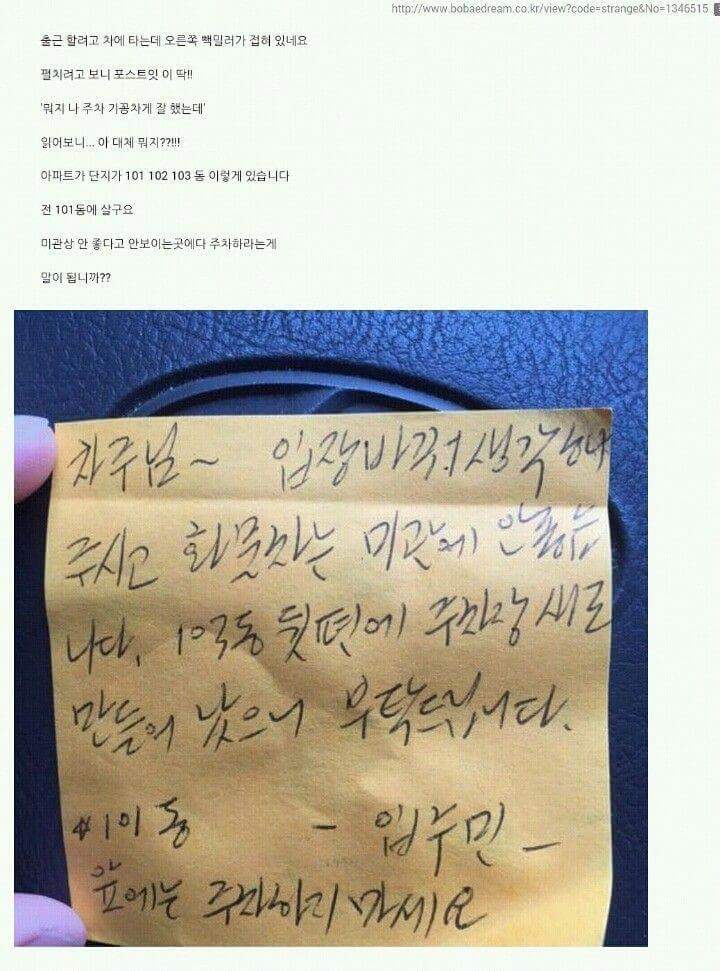 http://www.bobaedream.co.kr/view?code=strange&No=1346515
출근 할려고 차에 타는데 오른쪽 빽밀러가 접혀 있네요
펼치려고 보니 포스트잇 이 딱!!
'뭐지 나 주차 기꽁차게 잘 했는데'
읽어보니... 아 대체 뭐지??!!!
아파트가 단지가 101 102 103 동 이렇게 있습니다
전 101동에 살구요
미관상 안 좋다고 안보이는곳에다 주차하라는게
말이 됩니까??
차주님~ 입장바꿔 생각하
주시고 화물차는 미관에 안좋습
니다. 103동 뒷편에 주차장 새로
만들어 났으니 부탁드립니다.
101동 - 입주민 -
앞에는 주차하지 마세요